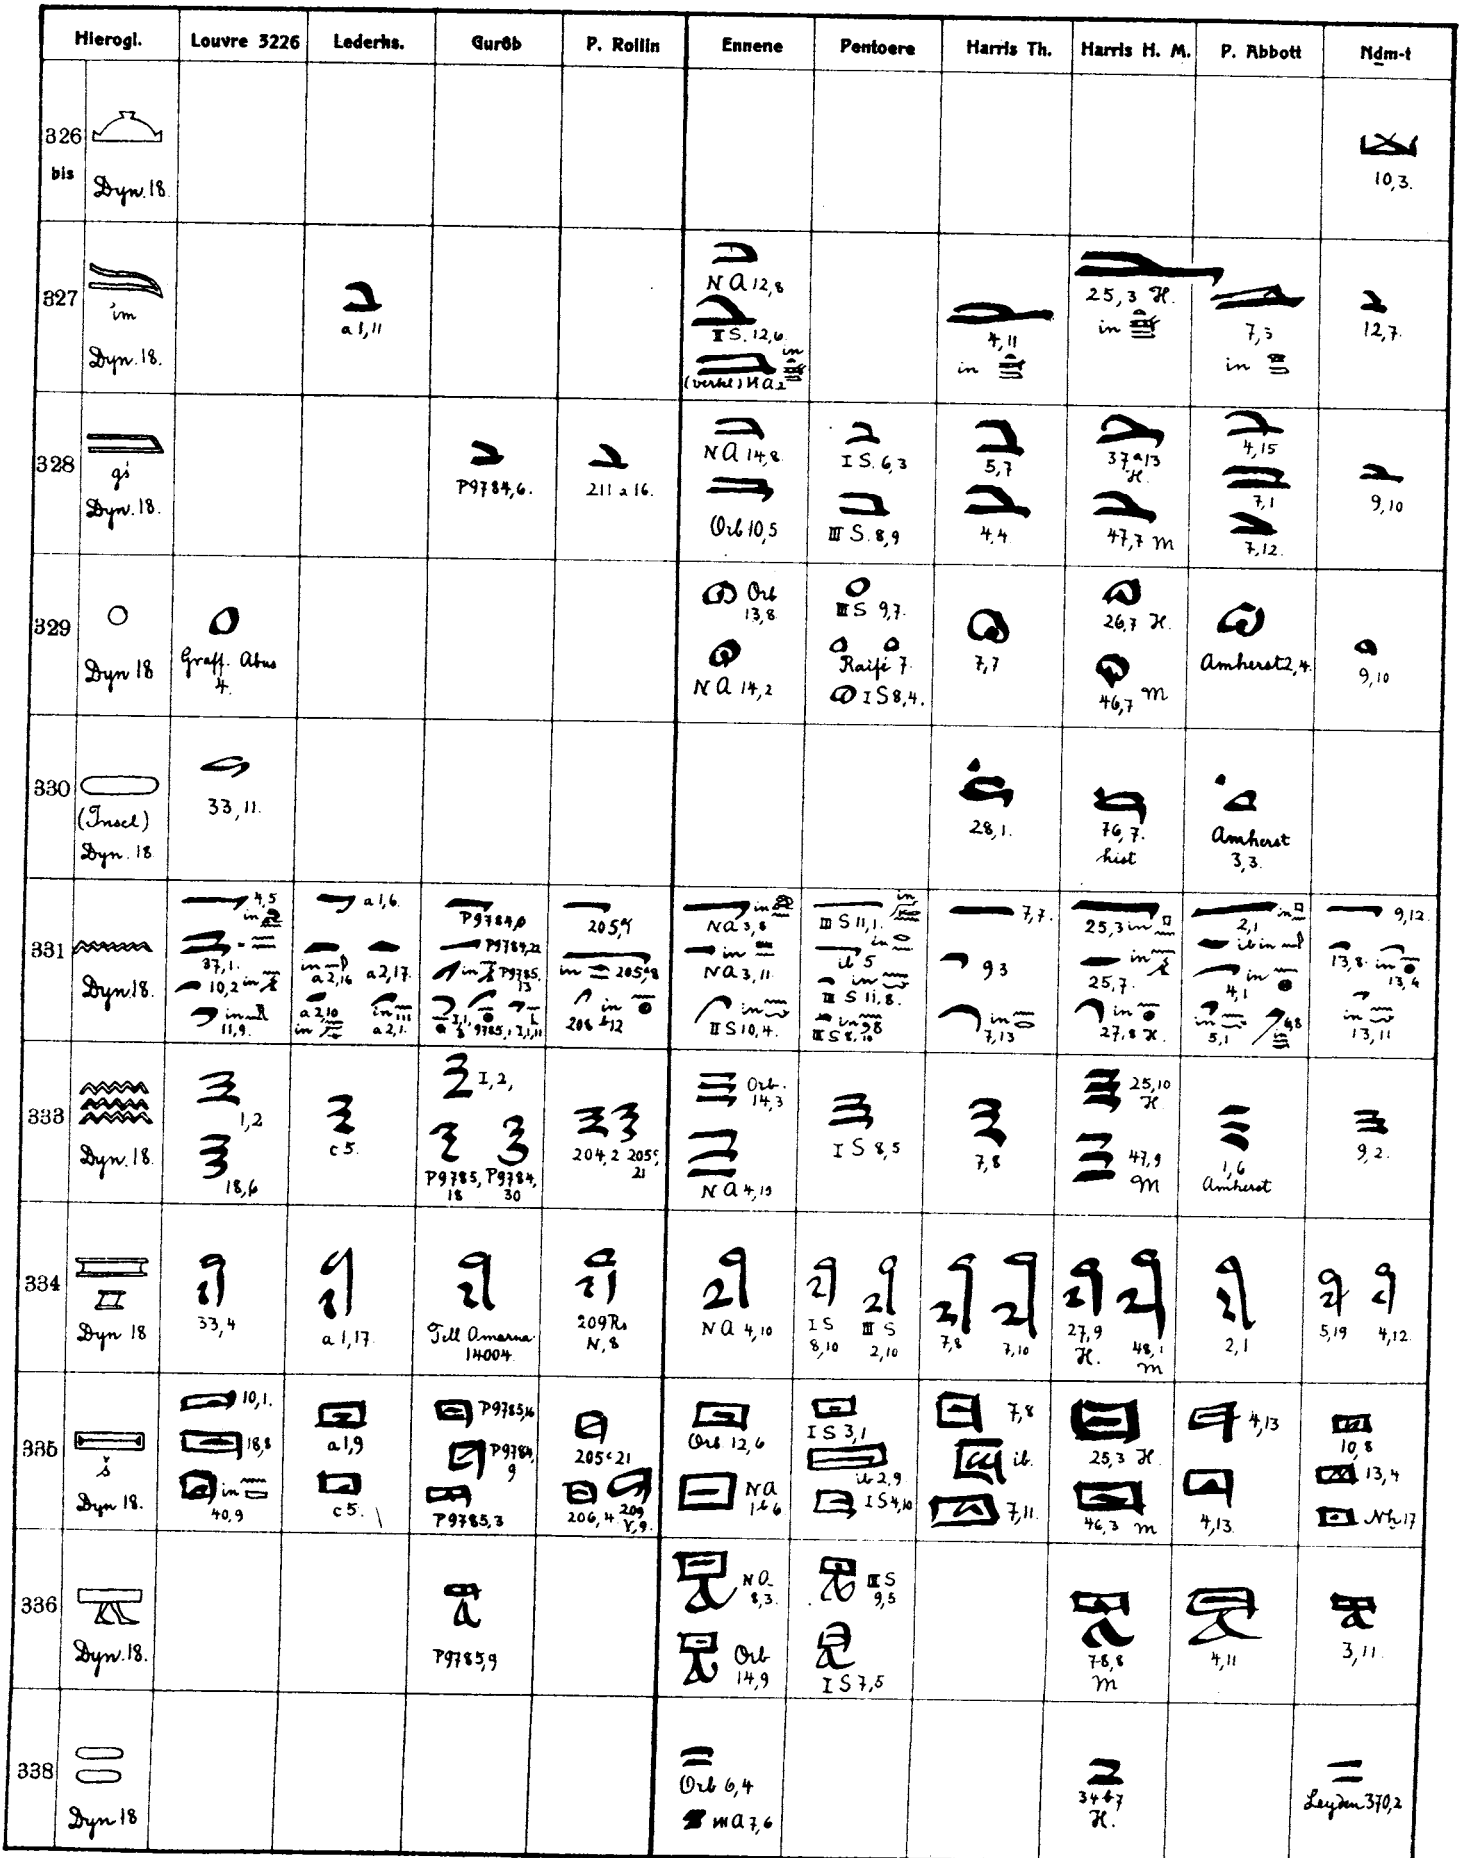 Hierogl. Louvre 3226 Lederhs. Gurôb P. Rollin Ennene Pentoere Harris Th. Harris H. M. P. Abbott Nḏm-t
326 bis
Dyn. 18.
10,3.
327
im
Dyn. 18.
a 1,11
N A 12,8
II S. 12,6
in
(verkl) N A 2
4,11
in
25,3 H.
in
7,3
in
12,7.
328
gś
Dyn. 18.
P 9784,6.
211 a 16.
N A 14,8
Orb 10,5
I S. 6,3
III S. 8,9
5,7
4,4.
37 a 13 H.
47,7 M
4,15
7,1
7,12.
9,10
329
Dyn 18
Graff. Abus 4.
Orb 13,8
N A 14,2
III S 9,7.
Raifé 7.
I S 8,4.
7,7
26,7 H.
46,7 M
Amherst 2,4.
9,10
330
(Insel)
Dyn. 18
33,11.
28,1.
76,7. hist
Amherst 3,3.
331
Dyn. 18.
4,5 in
37,1.
10,2 in
in 11,9.
a 1,6.
in a 2,16
a 2,17.
a 2,10 in
in a 2,1.
P 9784,
P 9784,22
in P 9785, 13
205,
in 205
in 208 b 12
in N A 3,8
in N A 3,11.
in II S 10,4.
in III S 11,1.
in ib 5
in III S 11,8.
in III S 8,10
7,7.
9 3
in 7,13
25,3 in
in 25,7.
in 27,8 H.
2,1 in
ib in
in 4,1
in 5,1
9,12.
13,8. in 13,4
in 13,11
333
Dyn. 18.
1,2
18,6
c 5.
I, 2,
P 9785, 18
P 9784, 30
204,2 205c, 21
Orb. 14,3
N A 4,10
I S 8,5
7,8
25,10 H.
47,9 M
1,6 Amherst
9,2.
334
Dyn 18
33,4
a 1,17.
Tell Amarna 14004.
209 Rs N, 8
N A 4,10
I S 8,10
III S 2,10
7,8
7,10
27,9 H.
48,1 M
2,1
5,19
4,12.
335
š
Dyn 18.
10,1.
18,8
in 40,9
a 1,9
c 5.
P 9785,16
P 9784, 9
P 9785,3
205 c 21
206,4
209 V,9.
Orb 12,6
N A 1 b 6
I S 3,1
ib 2,9
I S 4,10
7,8
ib.
7,11.
25,3 H.
46,3 M
4,13
4,13.
10,8
13,4
Nḫ 17
336
Dyn. 18.
P 9785,9
N A 8,3.
Orb 14,9
III S 9,5
I S 7,5
78,8 M
4,11
3,11.
338
Dyn 18
Orb 6,4
m A 7,6
34 b 7 H.
Leyden 370,2